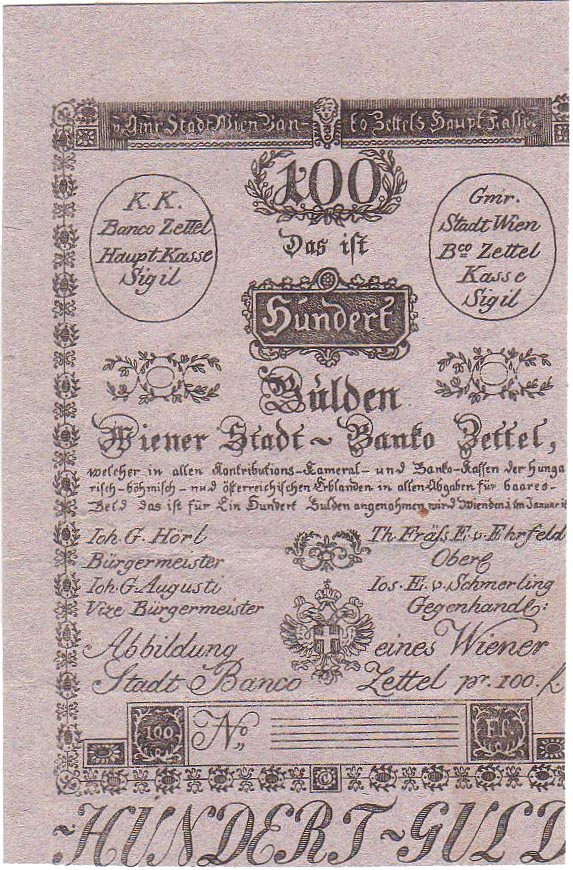 v. Gmr Stadt Wien Banko Zettels Haupt Kasse
100
K. K.
Banco Zettel
Haupt Kasse
Sigil
Gmr.
Stadt Wien
Bco Zettel
Kasse
Sigil
Das ist
Hundert
Gulden
Wiener Stadt ~ Banko Zettel,
welcher in allen Kontributions-Kameral- und Banko-Kassen der Hunga
risch-böhmisch- nud österreichischen Erblanden in allen Abgaben für baares-
Geld das ist für Ein Hundert Gulden angenohmen wird Wien den 1. im Januar
Ioh. G. Hörl
Bürgermeister
Ioh. G. Augusti
Vize Bürgermeister
Th. Fräſs. E. v. Ehrfeld
Oberl
Ios. E. v. Schmerling
Gegenhandl:
Abbildung eines Wiener
Stadt Banco Zettel pr. 100. f.
100 No. Fl.
~HUNDERT~GULD